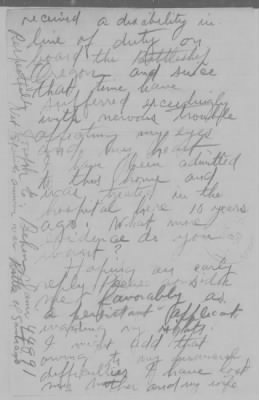 received a disability in
line of duty on
board the Battleship
Oregon and since
that time have
suffered exceedingly
with nervous trouble
affecting my eyes
and my heart
I have been admitted
to this home and
was treated in the
hospital here 10 years
ago. What more
evidence do you
want?
Hoping an early
reply
me favorably as
a persistant applicant
wanting my rights.
I might add that
owing to my
difficulties I have lost
my mother and my wife
Respectfully